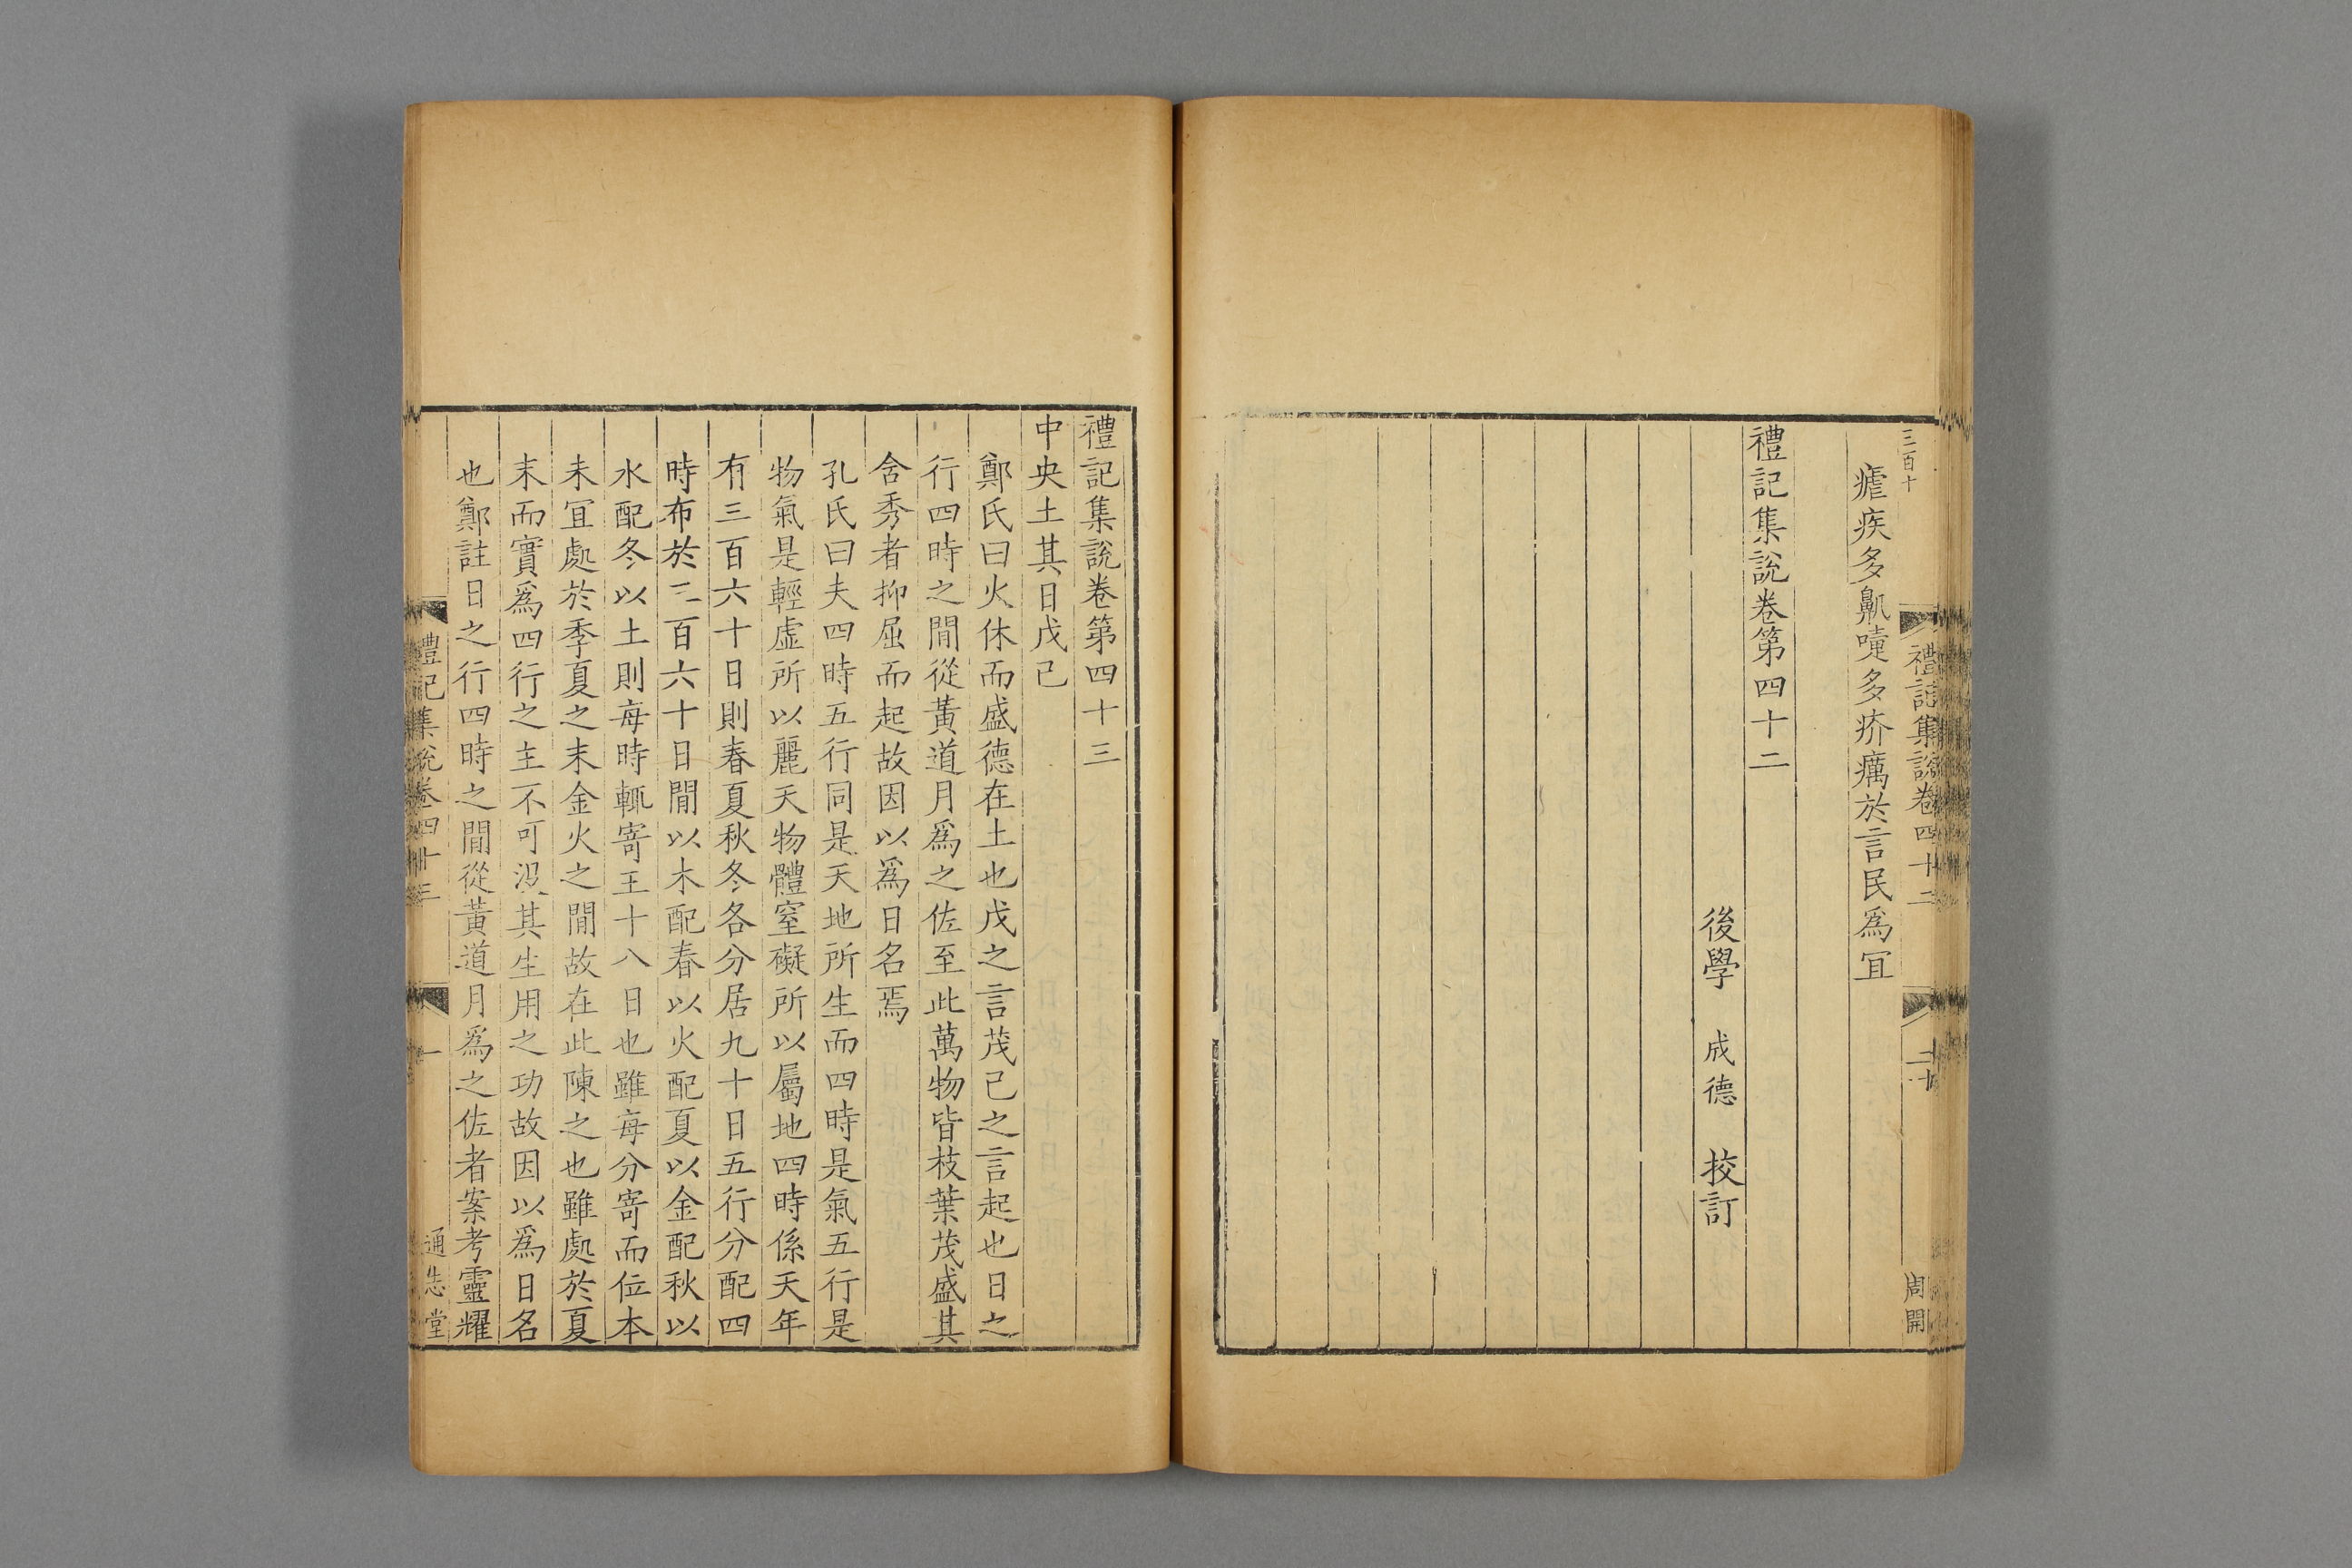 三百十
瘧疾多鼽嚏多疥癘於言民爲宜
禮記集說卷第四十二
後學 成德 校訂
禮記集說卷四十二
二十
周開
禮記集說卷第四十三
中央土其日戊己
鄭氏曰火休而盛德在土也戊之言茂己之言起也日之
行四時之閒從黃道月爲之佐至此萬物皆枝葉茂盛其
含秀者抑屈而起故因以爲日名焉
孔氏曰夫四時五行同是天地所生而四時是氣五行是
物氣是輕虛所以麗天物體窒礙所以屬地四時係天年
有三百六十日則春夏秋冬各分居九十日五行分配四
時布於三百六十日閒以木配春以火配夏以金配秋以
水配冬以土則每時輒寄王十八日也雖每分寄而位本
未宜處於季夏之末金火之閒故在此陳之也雖處於夏
末而實爲四行之主不可沒其生用之功故因以爲日名
也鄭註日之行四時之閒從黃道月爲之佐者案考靈耀
禮記集說卷四十三
一
通志堂